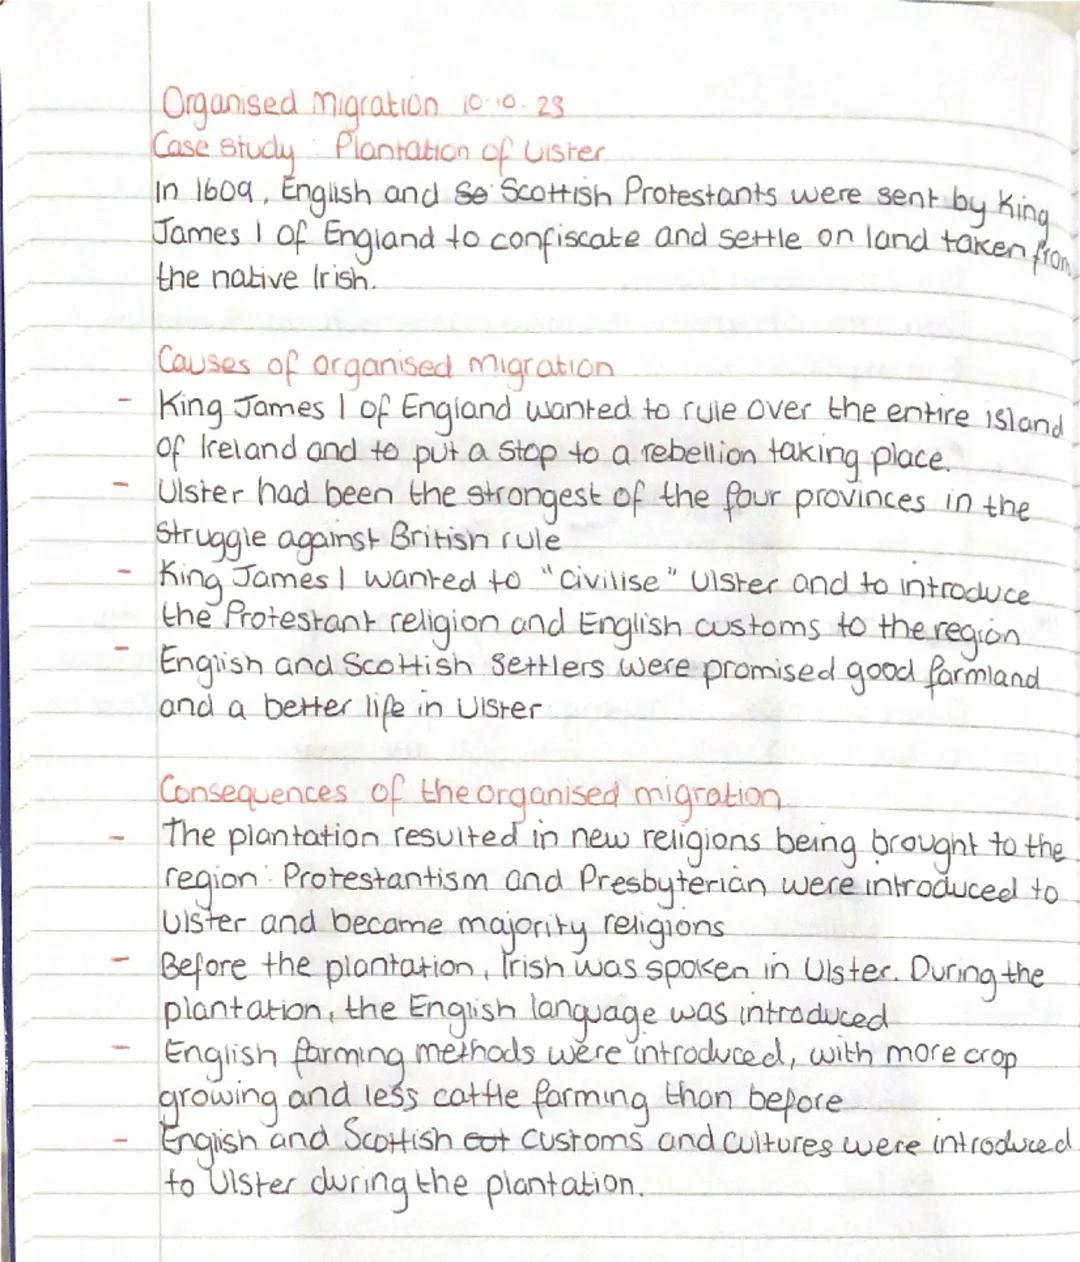 Organised Migration 10.10.23
Case study: Plantation of Ulster
In 1609, English and So Scottish Protestants were sent by King
James I of England to confiscate and settle on land taken from
the native Irish.
Causes of organised migration
- King James I of England wanted to rule over the entire island
of Ireland and to put a stop to a rebellion taking place.
- Ulster had been the strongest of the four provinces in the
struggle against British rule
- King James I wanted to "civilise" Ulster and to introduce
the Protestant religion and English customs to the region
- English and Scottish settlers were promised good farmland
and a better life in Ulster
Consequences of the organised migration
- The plantation resulted in new religions being brought to the
region. Protestantism and Presbyterian were introduced to
Ulster and became majority religions
- Before the plantation, Irish was spoken in Ulster. During the
plantation, the English language was introduced
- English farming methods were introduced, with more crop
growing and less cattle farming than before
- English and Scottish cut customs and cultures were introduced
to Ulster during the plantation.